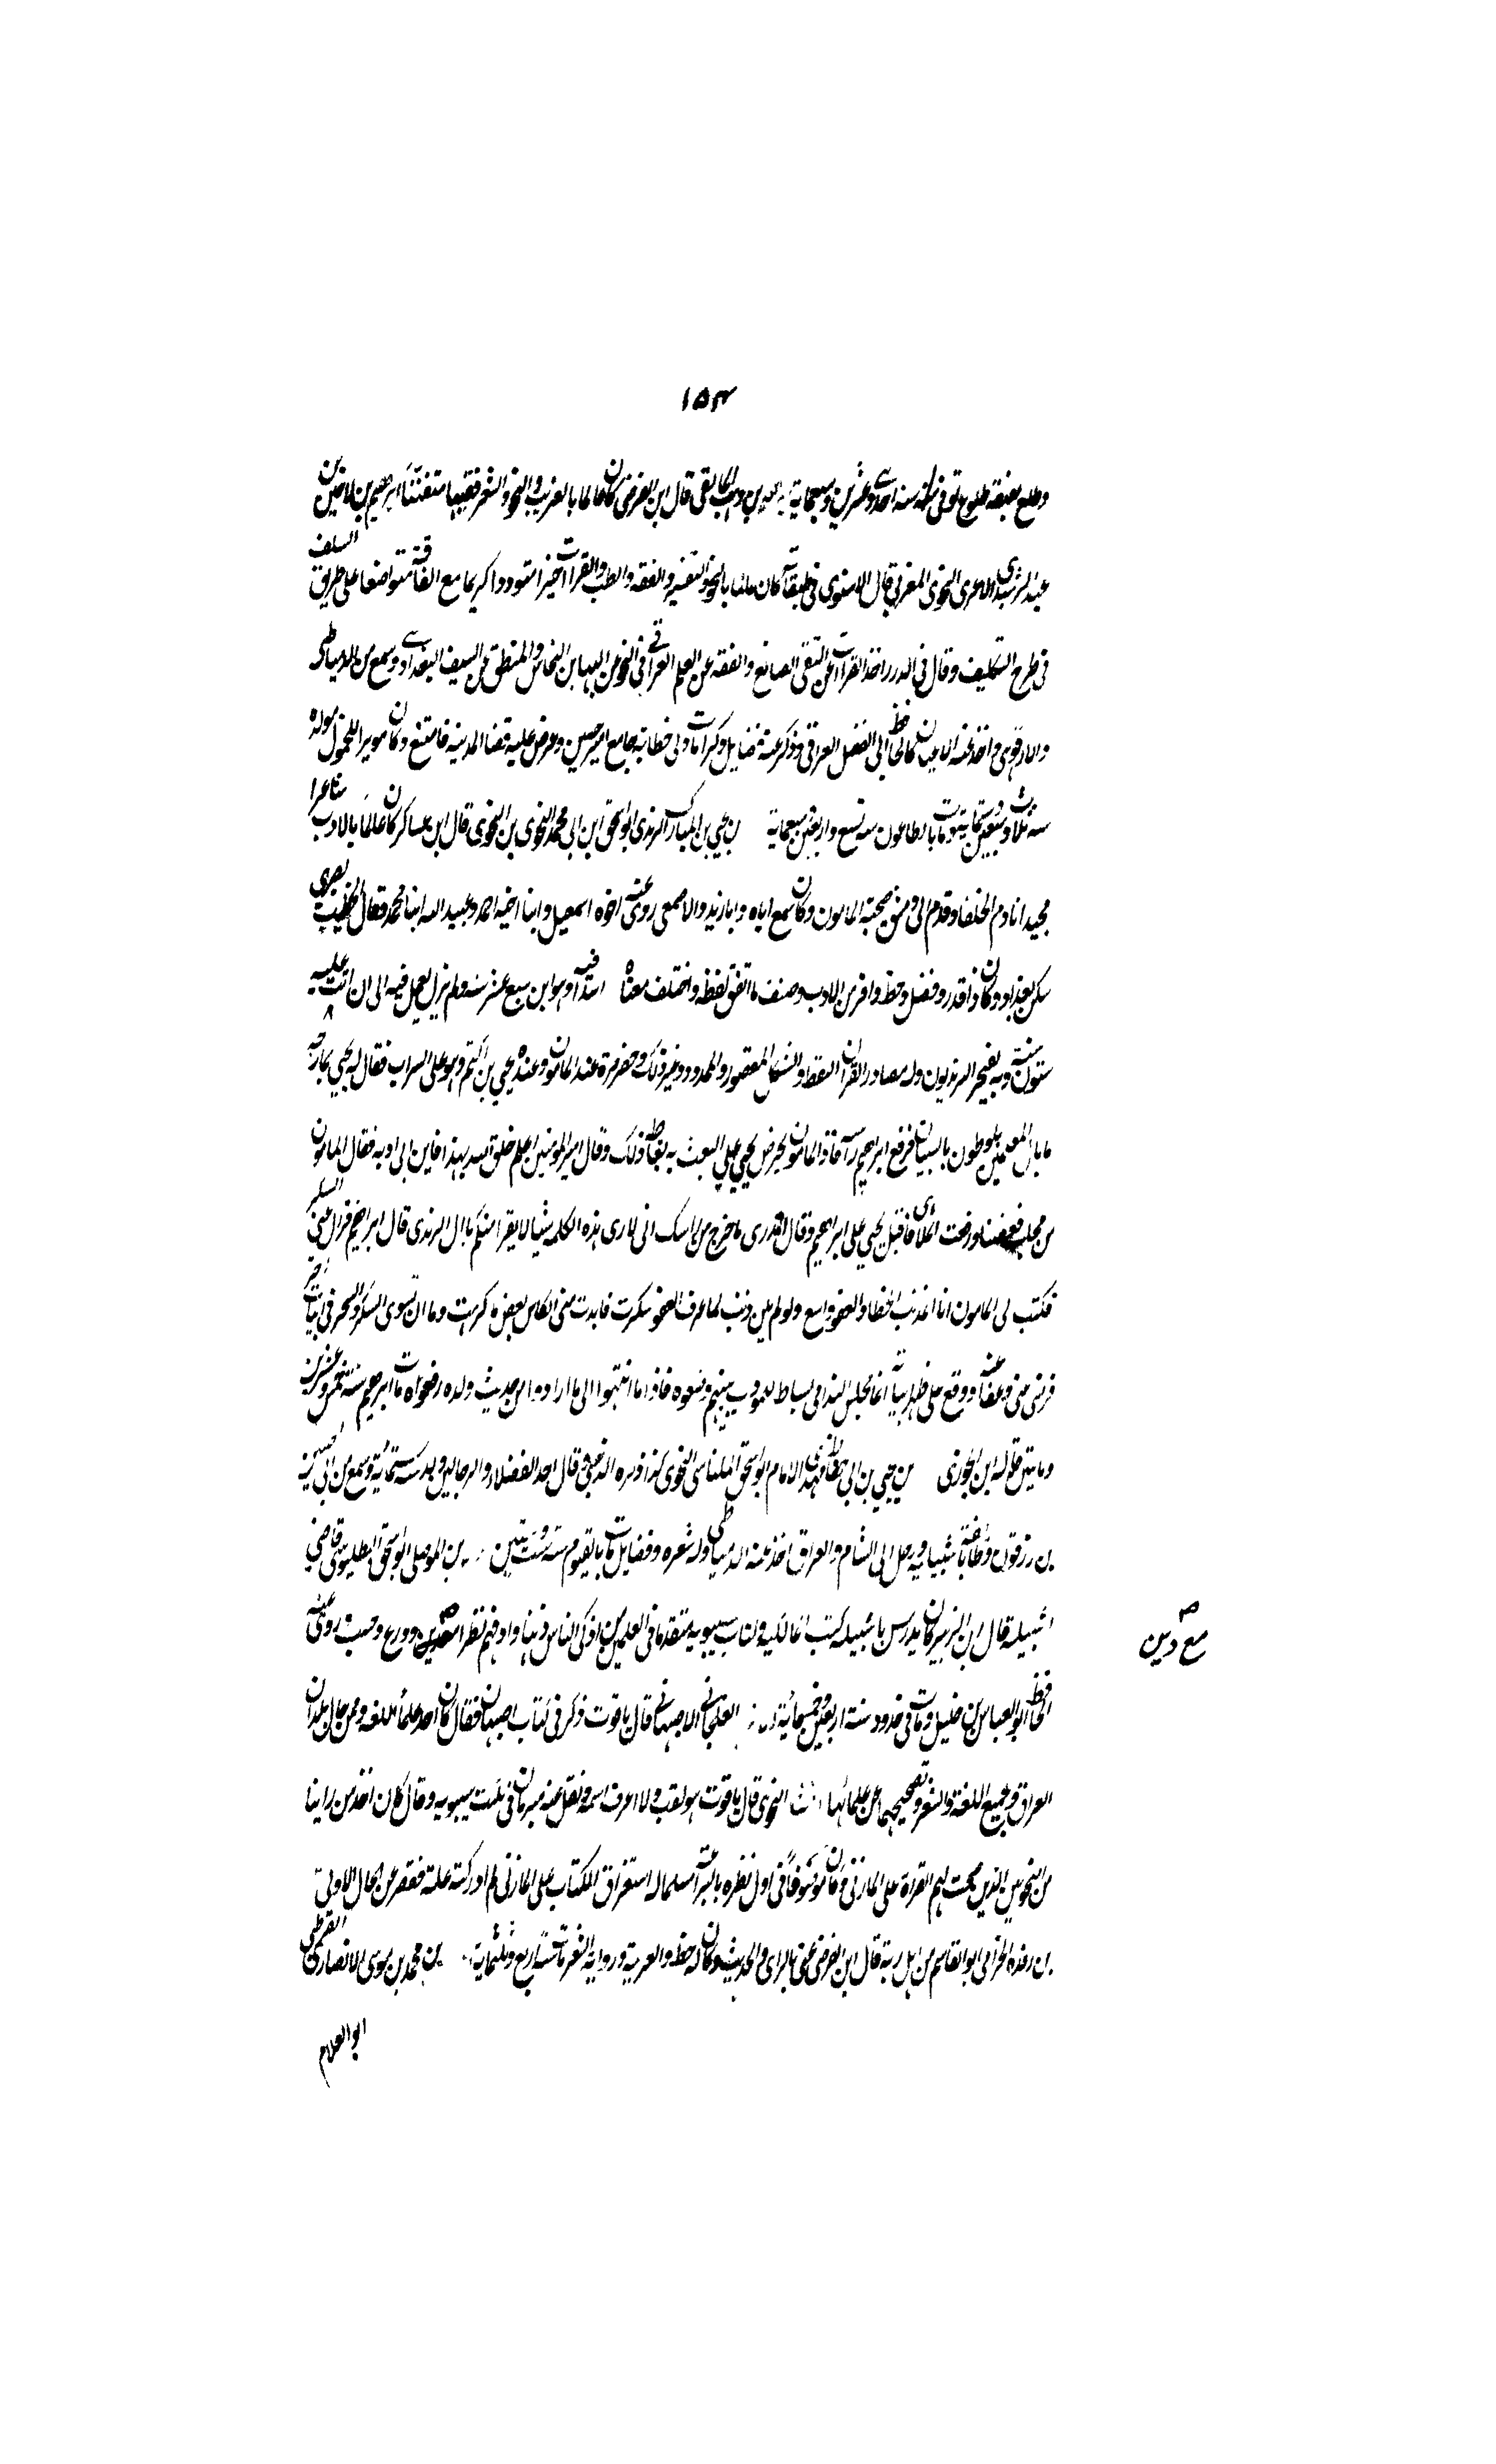 ١٥٣
وطلع بعبقة طلوع توفى بمكة سنة احدى وعشرين وسبعماية قال ابن الفرضى كان عالما بالعربية والنحو والشعر فقيها متفننا ابرهيم بن لاجين بن
عبد الرشيدى الاغرى النحوى المغربى قال الاسنوى فى طبقاته كان عالما بالنحو والتفسير والفقه والطب والقراآت خيرا متوددا كريما مع الفاقة متواضعا على طريق السلف
فى طرح التكليف وقال فى الدرر اخذ القراآت عن التقى الصايغ والفقه عن العلم العراقى والنحو عن البها بن النحاس والمنطق عن السيف البغدادى وسمع من الدمياطى
والابرقوهى واخذ عنه الاعيان كالحافظ ابى الفضل العراقى وذكر عنه فضايل وكرامات ولى خطابة جامع امير حسين وعرض عليه قضا المدينة فامتنع وكان موثرا للخمول مولده
سنة ثلاث وسبعين وستماية ومات بالطاعون سنة تسع واربعين وسبعماية بن يحيى بن المبارك اليزيدى ابو اسحق ابن ابى محمد النحوى بن النحوى قال ابن عساكر كان عالما بالادب شاعرا
مجيدا نادم الخلفا وقدم الى دمشق صحبة المامون وكان سمع اباه وابا زيد والاصمعى روى عنه اخوه اسمعيل وابنا اخيه احمد وعبيد الله ابنا محمد وقال الخطيب بصرى
سكن بغداد وكان ذا قدر وفضل وحظ وافر من الادب وصنف ما اتفق لفظه واختلف معناه ابتدا فيه وهو ابن سبع عشر سنة ولم يزل يعمل فيه الى ان اتت عليه
ستون سنة وبه يفتخر اليزيديون وله مصادر القرآن النقط والشكل المقصور والممدود وغير ذلك وحضر مرة عند المامون وعنده يحيى بن اكثم وهو على الشراب فقال له يحيى يمازحه
ما بال المعلمين يلوطون بالصبيان فرفع ابراهيم رأسه فاذا المامون يحرض يحيى على العبث به فغاظه ذلك وقال امير المؤمنين اعلم خلق الله بهذا فان ابى ادبه فقال المامون
من مجلسه ورفعت الملاهى فاقبل يحيى على ابراهيم وقال اتدرى ما خرج من راسك انى لارى هذه الكلمة سببا لانقراضكم يا آل اليزيدى قال ابراهيم فزال عنى السكر
فكتبت الى المامون انا المذنب الخطا والعفو واسع ولو لم يكن ذنب لما عرف العفو سكرت فابدت منى الكاس بعض ما كرهت وما ان يستوى السكر والصحو فى ابيات اخر
فرضى عنى وعفا ووقع على ظهر ابياته انما مجلس الندامى بساط للمودات بينهم وضعوه فاذا ما انتهوا الى ما ارادوا من حديث ولذة رفعوه مات ابراهيم سنة خمس وعشرين
ومايتين قاله ابن الجوزى بن يحيى بن ابى حفاظ مهدى الامام ابو اسحق المكناسى النحوى كذا ذكره الذهبى وقال احد الفضلاء والرحالين ولد سنة ستمائة وسمع من ابى الحسين
بن زرقون وطائفة باشبيلية ورحل الى الشام والعراق اخذ عنه الدمياطى وله شعر وفضايل مات بالفيوم سنة ست وستين بن الموصلى ابو اسحق البطليوسى قاضى
اشبيلية قال ابن الزبير كان يدرس باشبيلية كتب المالكية وكتاب سيبويه متقدما فى العلمين من اذكى الناس ذهنا وادقهم نظرا وورع وحسب روى عنه
الحافظ ابو العباس بن خليل ومات فى حدود سنة اربعين وخمسمائة الاصبهانى قال ياقوت ذكر فى كتاب اصبهان فقال كان احد علماء اللغة وممن جال بلدان
العراق وجمع اللغة والشعر وتصحيحهما عن علمائها النحوى قال ياقوت هو لقب ولا اعرف اسمه ونقل عنه مبرمان فى نكت سيبويه وقال كان اخذ من راينا
من النحويين الذين صحت لهم القراة على المازنى وكان موصوفا فى اول نظره بالبراعة مسلما له استغراق الكتاب على المازنى ثم ادركته علة فقصر عن الحال الاولى
بن رفده الحزامى ابو القاسم من اهل رية قال ابن الفرضى عنى بالراى والحديث وكان له حظ والعربية ورواية الشعر مات سنة اربع وثلثماية بن محمد بن موسى الانصارى القرطبى
ابو العلام
مع دين